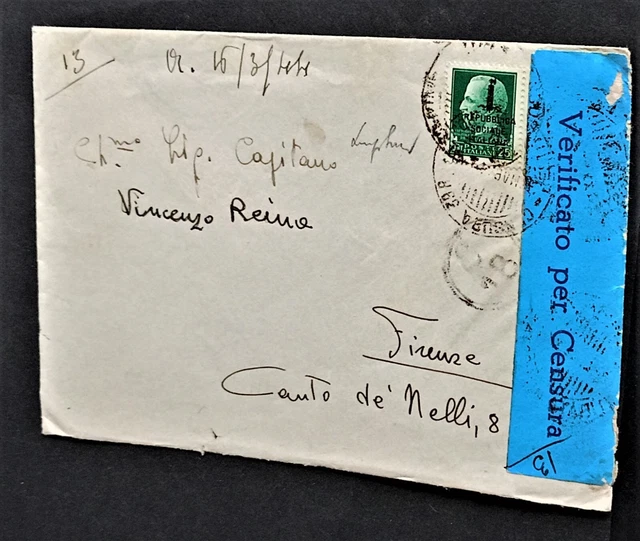 13
16/3/44
REPUBBLICA
SOCIALE
Ch.mo Sig. Capitano
Vincenzo Reina
18
Firenze
Canto de' Nelli, 8
Verificato per Censura
13